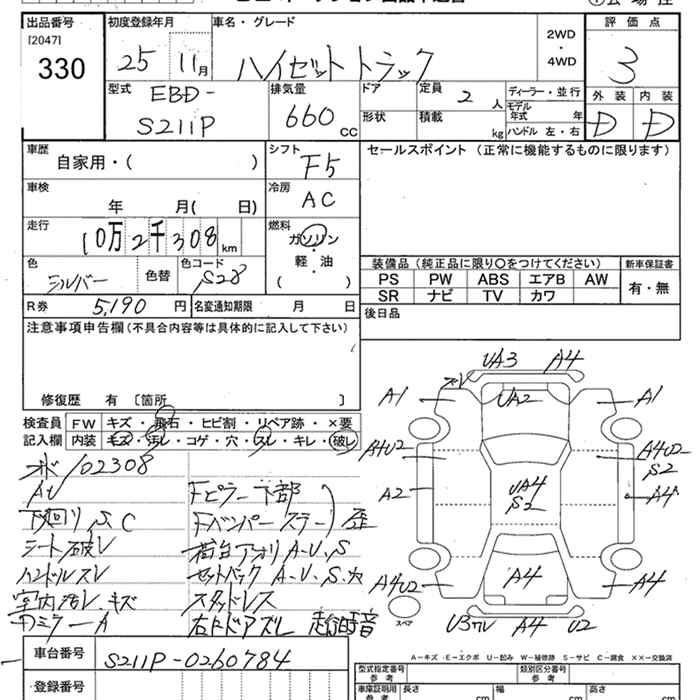 出品番号
[2047]
330
初度登録年月
25 11月
車名・グレード
ハイゼットトラック
2WD
・
4WD
評価点
3
外装 内装
D D
型式
EBD-
S211P
排気量
660 CC
ドア
形状
定員 2 人
積載 kg
ディーラー・並行
モデル年式 年
ハンドル 左・右
車歴
自家用・( )
シフト
F5
車検
年 月( 日)
冷房
AC
走行
10万2千308km
燃料
ガソリン
・
軽・油
( )
色
シルバー
色替
色コード
S28
R券 5,190 円
名変通知期限 月 日
セールスポイント (正常に機能するものに限ります)
装備品 (純正品に限り○をつけてください)
PS PW ABS エアB AW
SR ナビ TV カワ
新車保証書
有・無
後日品
注意事項申告欄(不具合内容等は具体的に記入して下さい)
修復歴 有 〔箇所 〕
検査員
記入欄
FW キズ・飛石・ヒビ割・リペア跡・×要
内装 キズ・汚レ・コゲ・穴・スレ・キレ・破レ
102308
AU
下回りS.C
シート破レ
ハンドルスレ
室内汚レ、キズ
Fピラー下部
Fバンパーステー
歪
荷台アオリ A-U、S
セットバック A-U、S、穴
スタッドレス
右Fドアズレ
UA3 A4
A1 UA2 A1
A4U2 A4U2
S2
A2 UA4
S2 A4
A4U2 A4 A4
スペア
A4 U2
A－キズ・E－エクボ U－凹み W－補修跡 S－サビ C－腐食 ××－交換済
車台番号
S211P-0260784
・登録番号
型式指定番号
参考
類別区分番号
参考
車庫証明用
参考
長さ cm
幅 cm
高さ cm